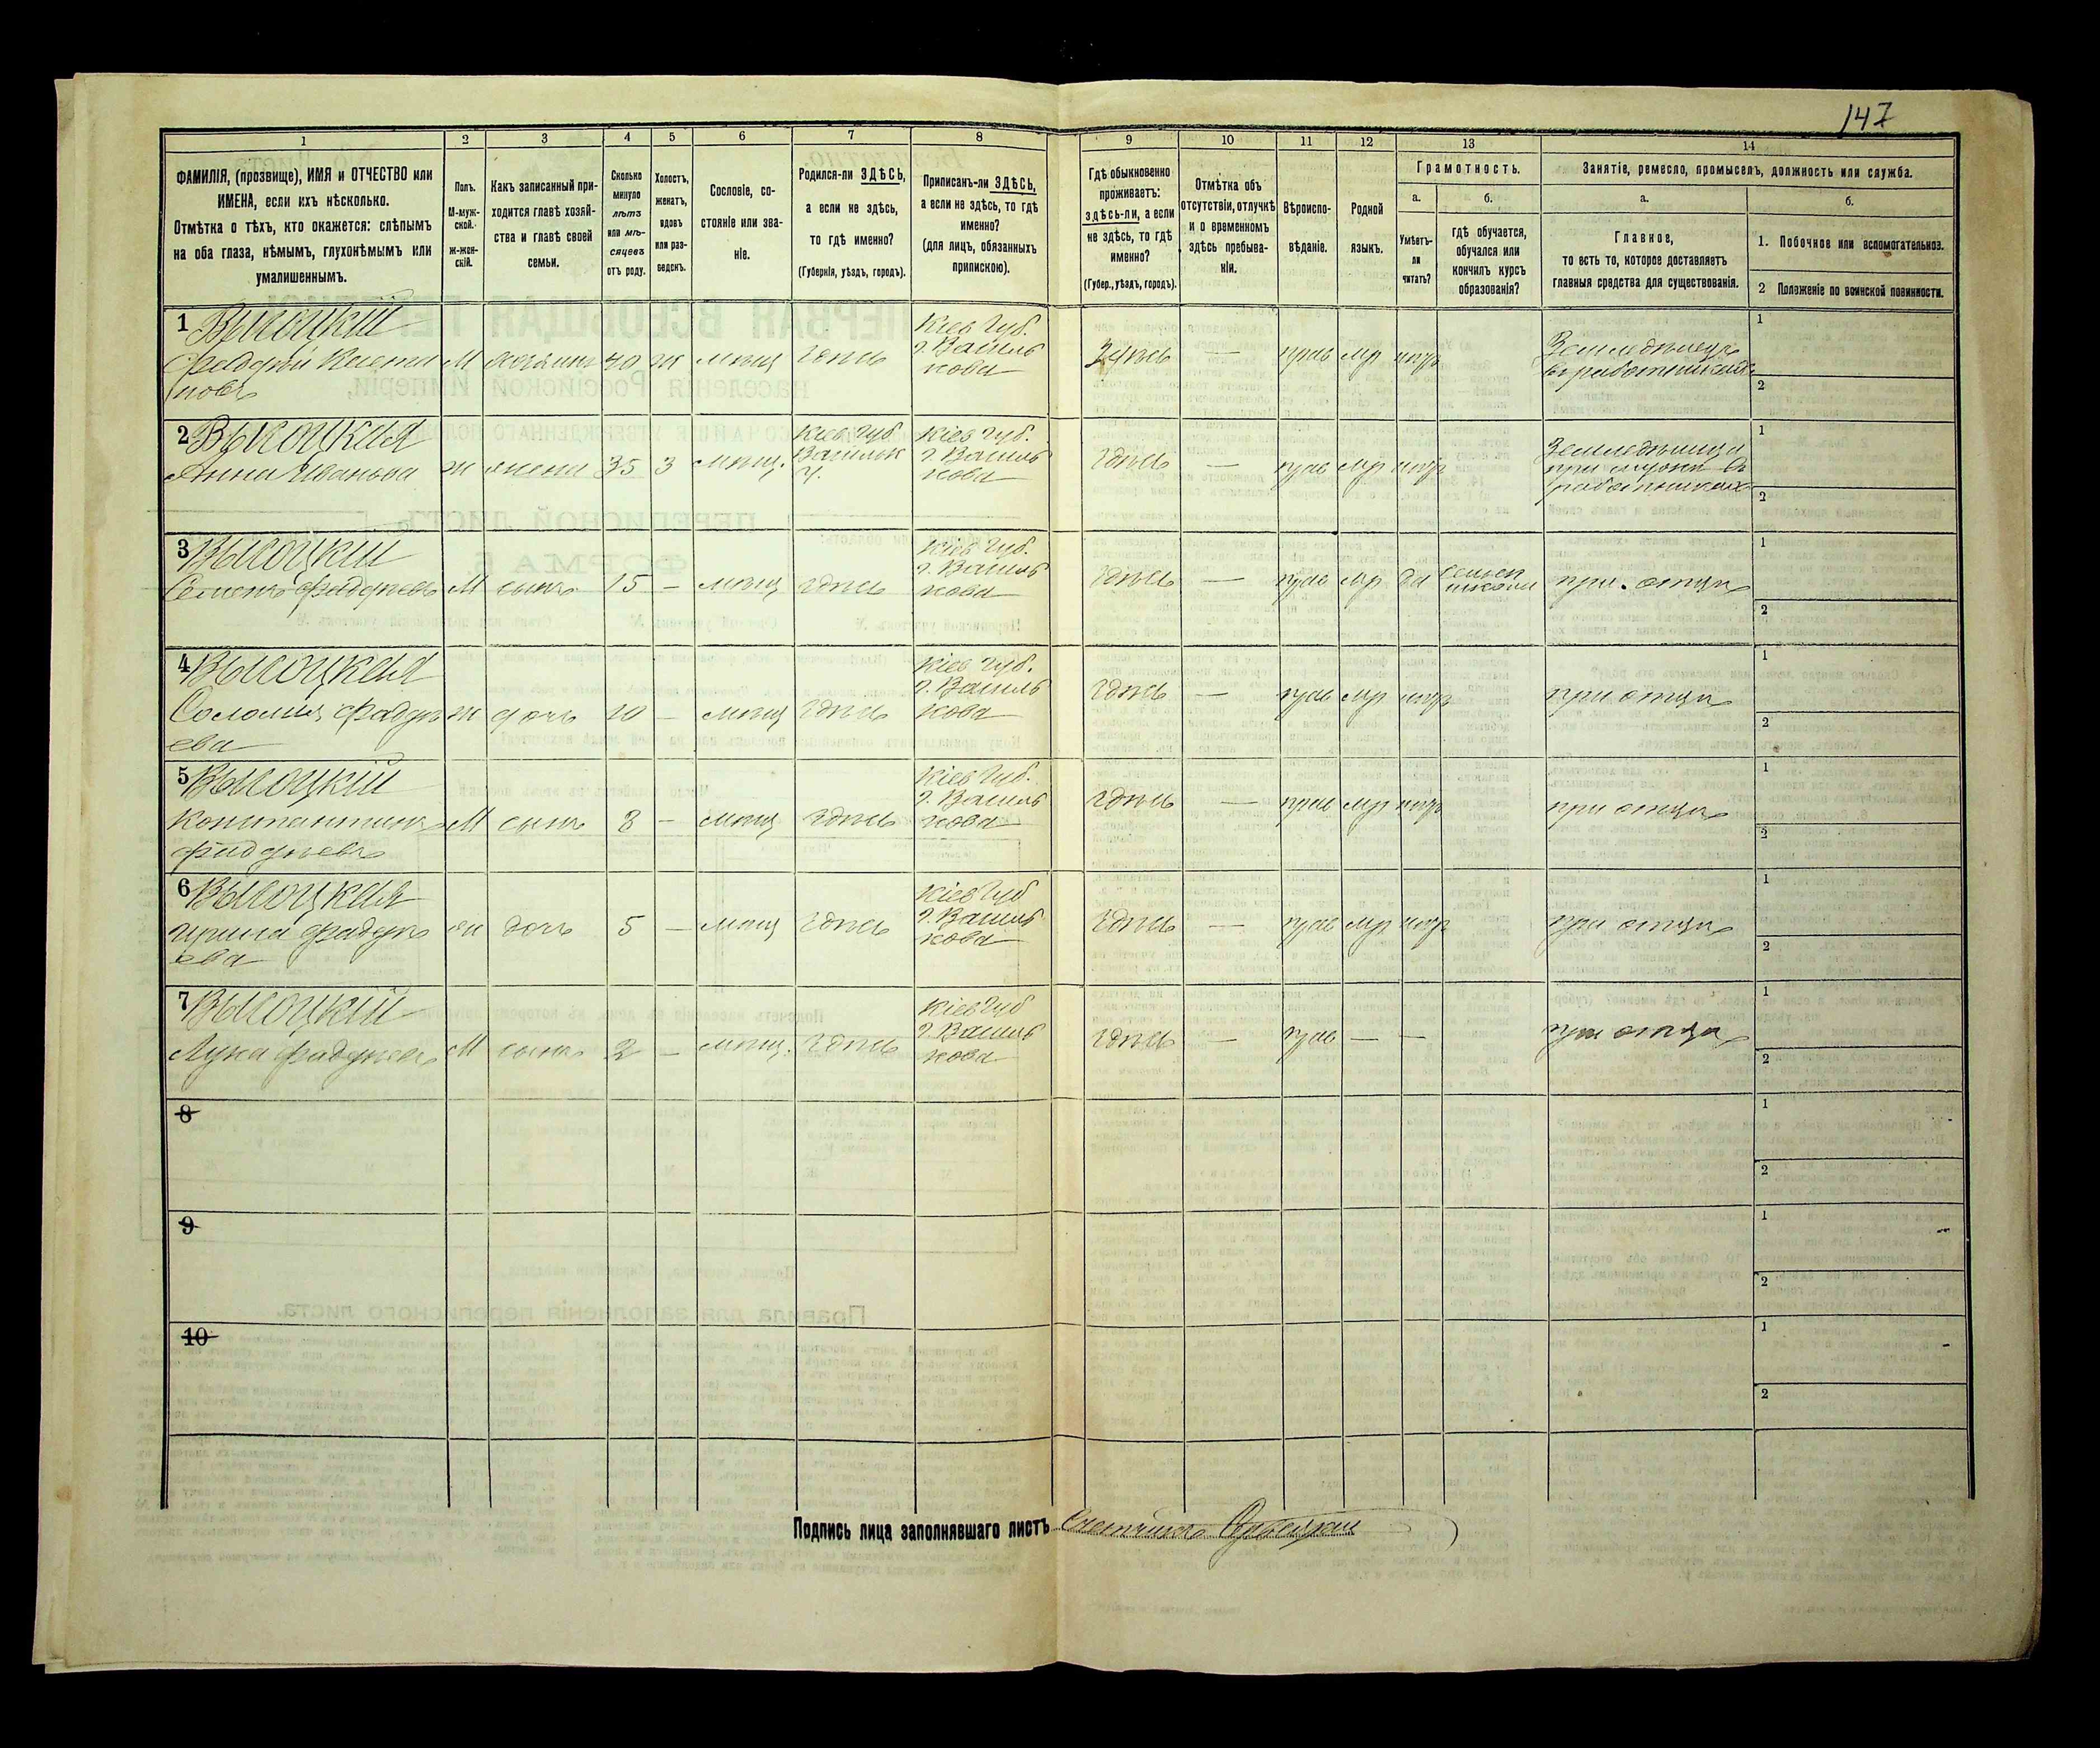 147
1 2 3 4 5 6 7 8 9 10 11 12 13 14
ФАМИЛІЯ, (прозвище), ИМЯ и ОТЧЕСТВО или
ИМЕНА, если ихъ нѣсколько.
Отмѣтка о тѣхъ, кто окажется: слѣпымъ
на оба глаза, нѣмымъ, глухонѣмымъ или
умалишеннымъ.
Полъ.
М-муж-
ской.
ж-жен-
скій.
Какъ записанный при-
ходится главѣ хозяй-
ства и главѣ своей
семьи.
Сколько
минуло
лѣтъ
или мѣ-
сяцевъ
отъ роду.
Холостъ,
женатъ,
вдовъ
или раз-
веденъ.
Сословіе, со-
стояніе или зва-
ніе.
Родился-ли ЗДѢСЬ,
а если не здѣсь,
то гдѣ именно?
(Губернія, уѣздъ, городъ).
Приписанъ-ли ЗДѢСЬ,
а если не здѣсь, то гдѣ
именно?
(для лицъ, обязанныхъ
припискою).
Гдѣ обыкновенно
проживаетъ:
здѣсь-ли, а если
не здѣсь, то гдѣ
именно?
(Губер., уѣздъ, городъ).
Отмѣтка объ
отсутствіи, отлучкѣ
и о временномъ
здѣсь пребыва-
ніи.
Вѣроиспо-
вѣданіе.
Родной
языкъ.
Грамотность.
а.
Умѣетъ-
ли
читать?
б.
гдѣ обучается,
обучался или
кончилъ курсъ
образованія?
Занятіе, ремесло, промыселъ, должность или служба.
а.
Главное,
то есть то, которое доставляетъ
главныя средства для существованія.
б.
1. Побочное или вспомогательное.
2 Положеніе по воинской повинности.
1 Высоцкій
М хозяинъ 40 ж мѣщ здѣсь
Кіев Губ.
г. Василь
кова
Здѣсь — прав мр нѣтъ
Земледѣлецъ
1
2
2 Высоцкая
Анна Иванова ж жена 35 з мѣщ.
Кіев Губ.
Васильк
у.
Кіев Губ.
г. Василь
кова
здѣсь — прав мр нѣтъ
при мужѣ
1
2
3 Высоцкій
Семенъ Фадѣевъ М сынъ 15 — мѣщ здѣсь
Кіев Губ.
г. Василь
кова
здѣсь — прав мр да
школѣ
при отцѣ
1
2
4 Высоцкая
Соломія Фадѣ
ева
ж дочь 10 — мѣщ здѣсь
Кіев Губ.
г. Василь
кова
здѣсь — прав мр нѣтъ при отцѣ
1
2
5 Высоцкій
Константинъ
Фадѣевъ
М сынъ 8 — мѣщ здѣсь
Кіев Губ.
г. Василь
кова
здѣсь — прав мр нѣтъ при отцѣ
1
2
6 Высоцкая
Ирина Фадѣ
ева
ж дочь 5 — мѣщ здѣсь
Кіев Губ
г. Василь
кова
здѣсь — прав мр нѣтъ при отцѣ
1
2
7 Высоцкій
Лука Фадѣевъ М сынъ 2 — мѣщ. здѣсь
Кіев Губ
г. Василь
кова
здѣсь — прав — — при отцѣ
1
2
8
1
2
9
1
2
10
1
2
Подпись лица заполнявшаго листъ Счетчикъ